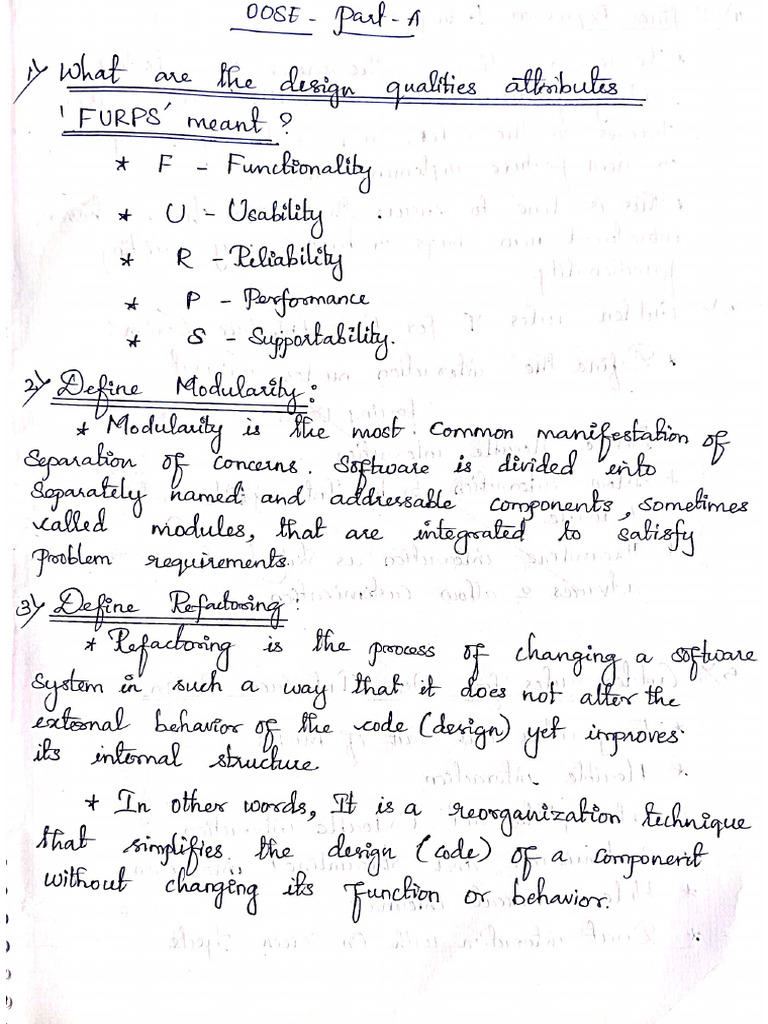 OOSE - Part - A
1) What are the design qualities attributes
'FURPS' meant?
* F - Functionality
* U - Usability
* R - Reliability
* P - Performance
* S - Supportability.
2) Define Modularity:
* Modularity is the most common manifestation of
separation of concerns. Software is divided into
separately named and addressable components, sometimes
called modules, that are integrated to satisfy
problem requirements.
3) Define Refactoring:
* Refactoring is the process of changing a software
system in such a way that it does not alter the
external behavior of the code (design) yet improves
its internal structure
* In other words, It is a reorganization technique
that simplifies the design (code) of a component
without changing its function or behavior.